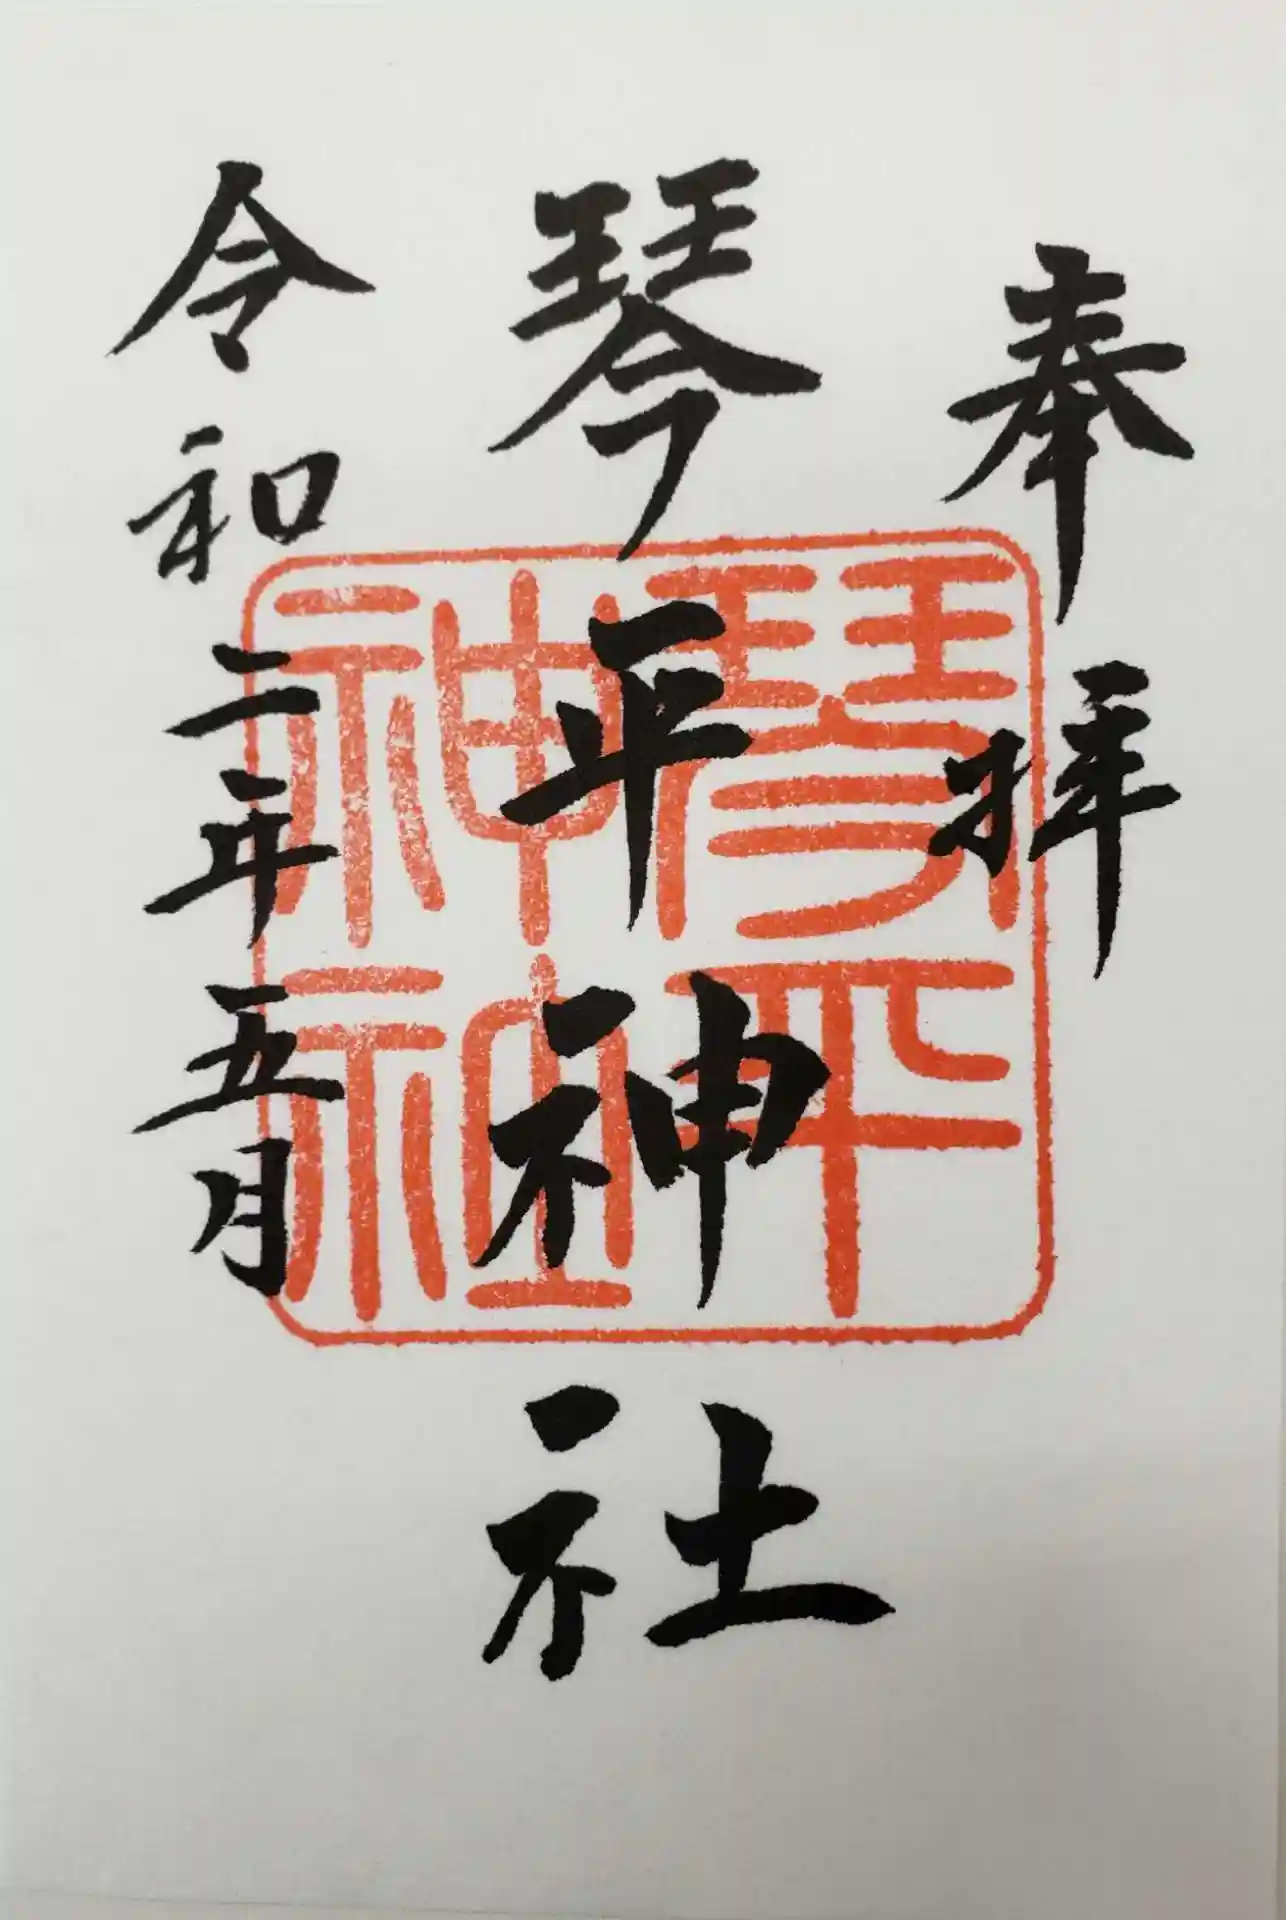 奉拝
琴平神社
琴平神社
令和二年五月